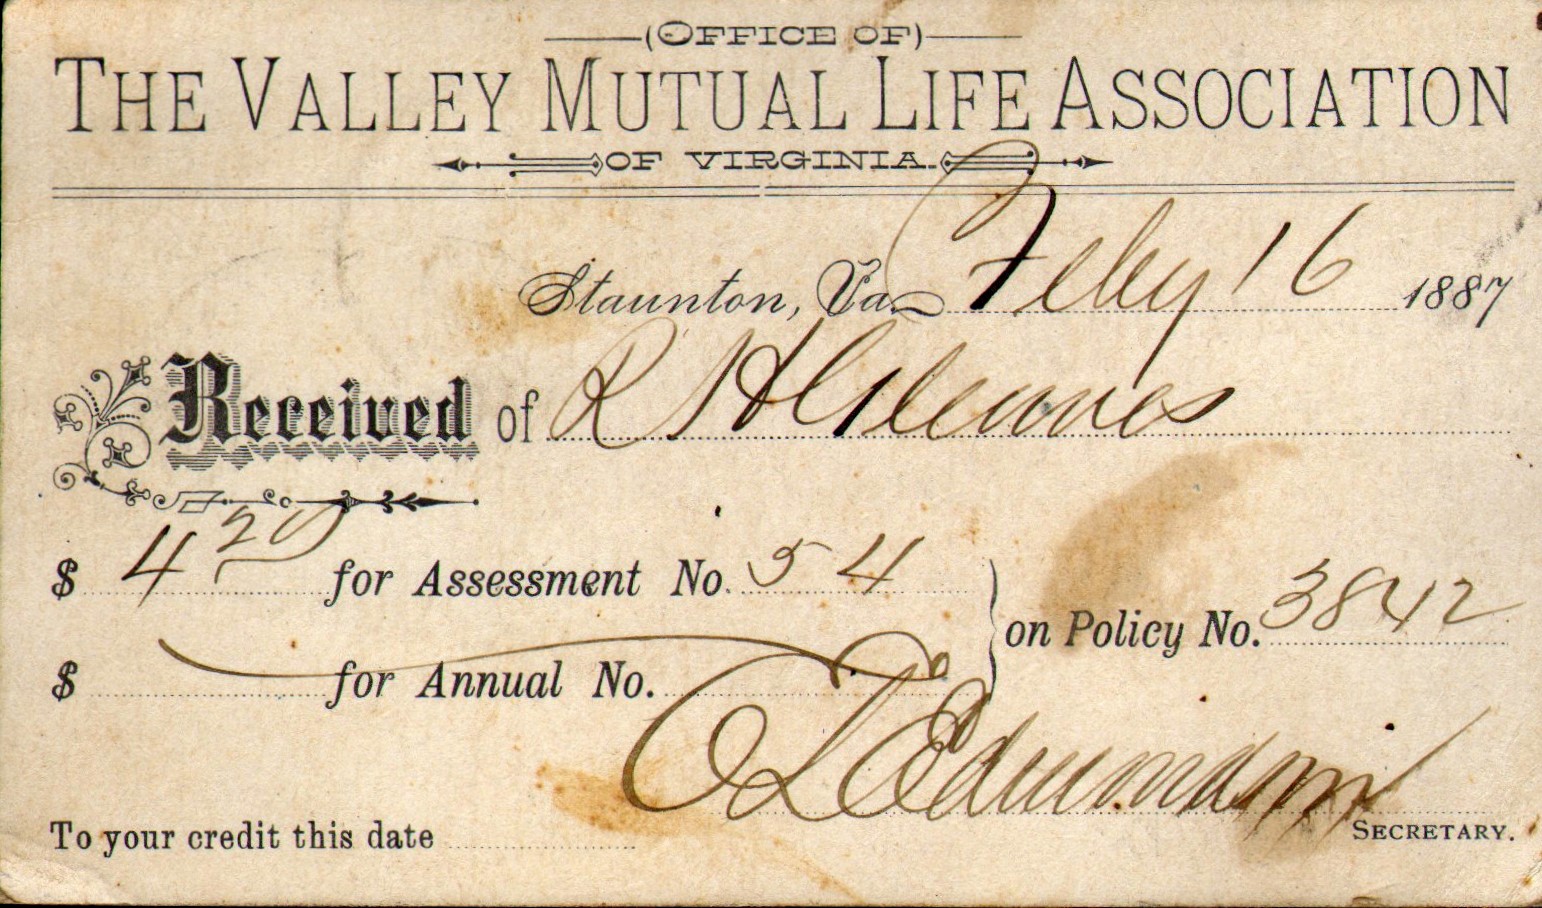 (OFFICE OF)
THE VALLEY MUTUAL LIFE ASSOCIATION
OF VIRGINIA.
Staunton, Va. Feby 16 1887
Received of R H
$ 4 20 for Assessment No. 54
on Policy No. 3842
$ for Annual No.
Edmondson
To your credit this date
SECRETARY.